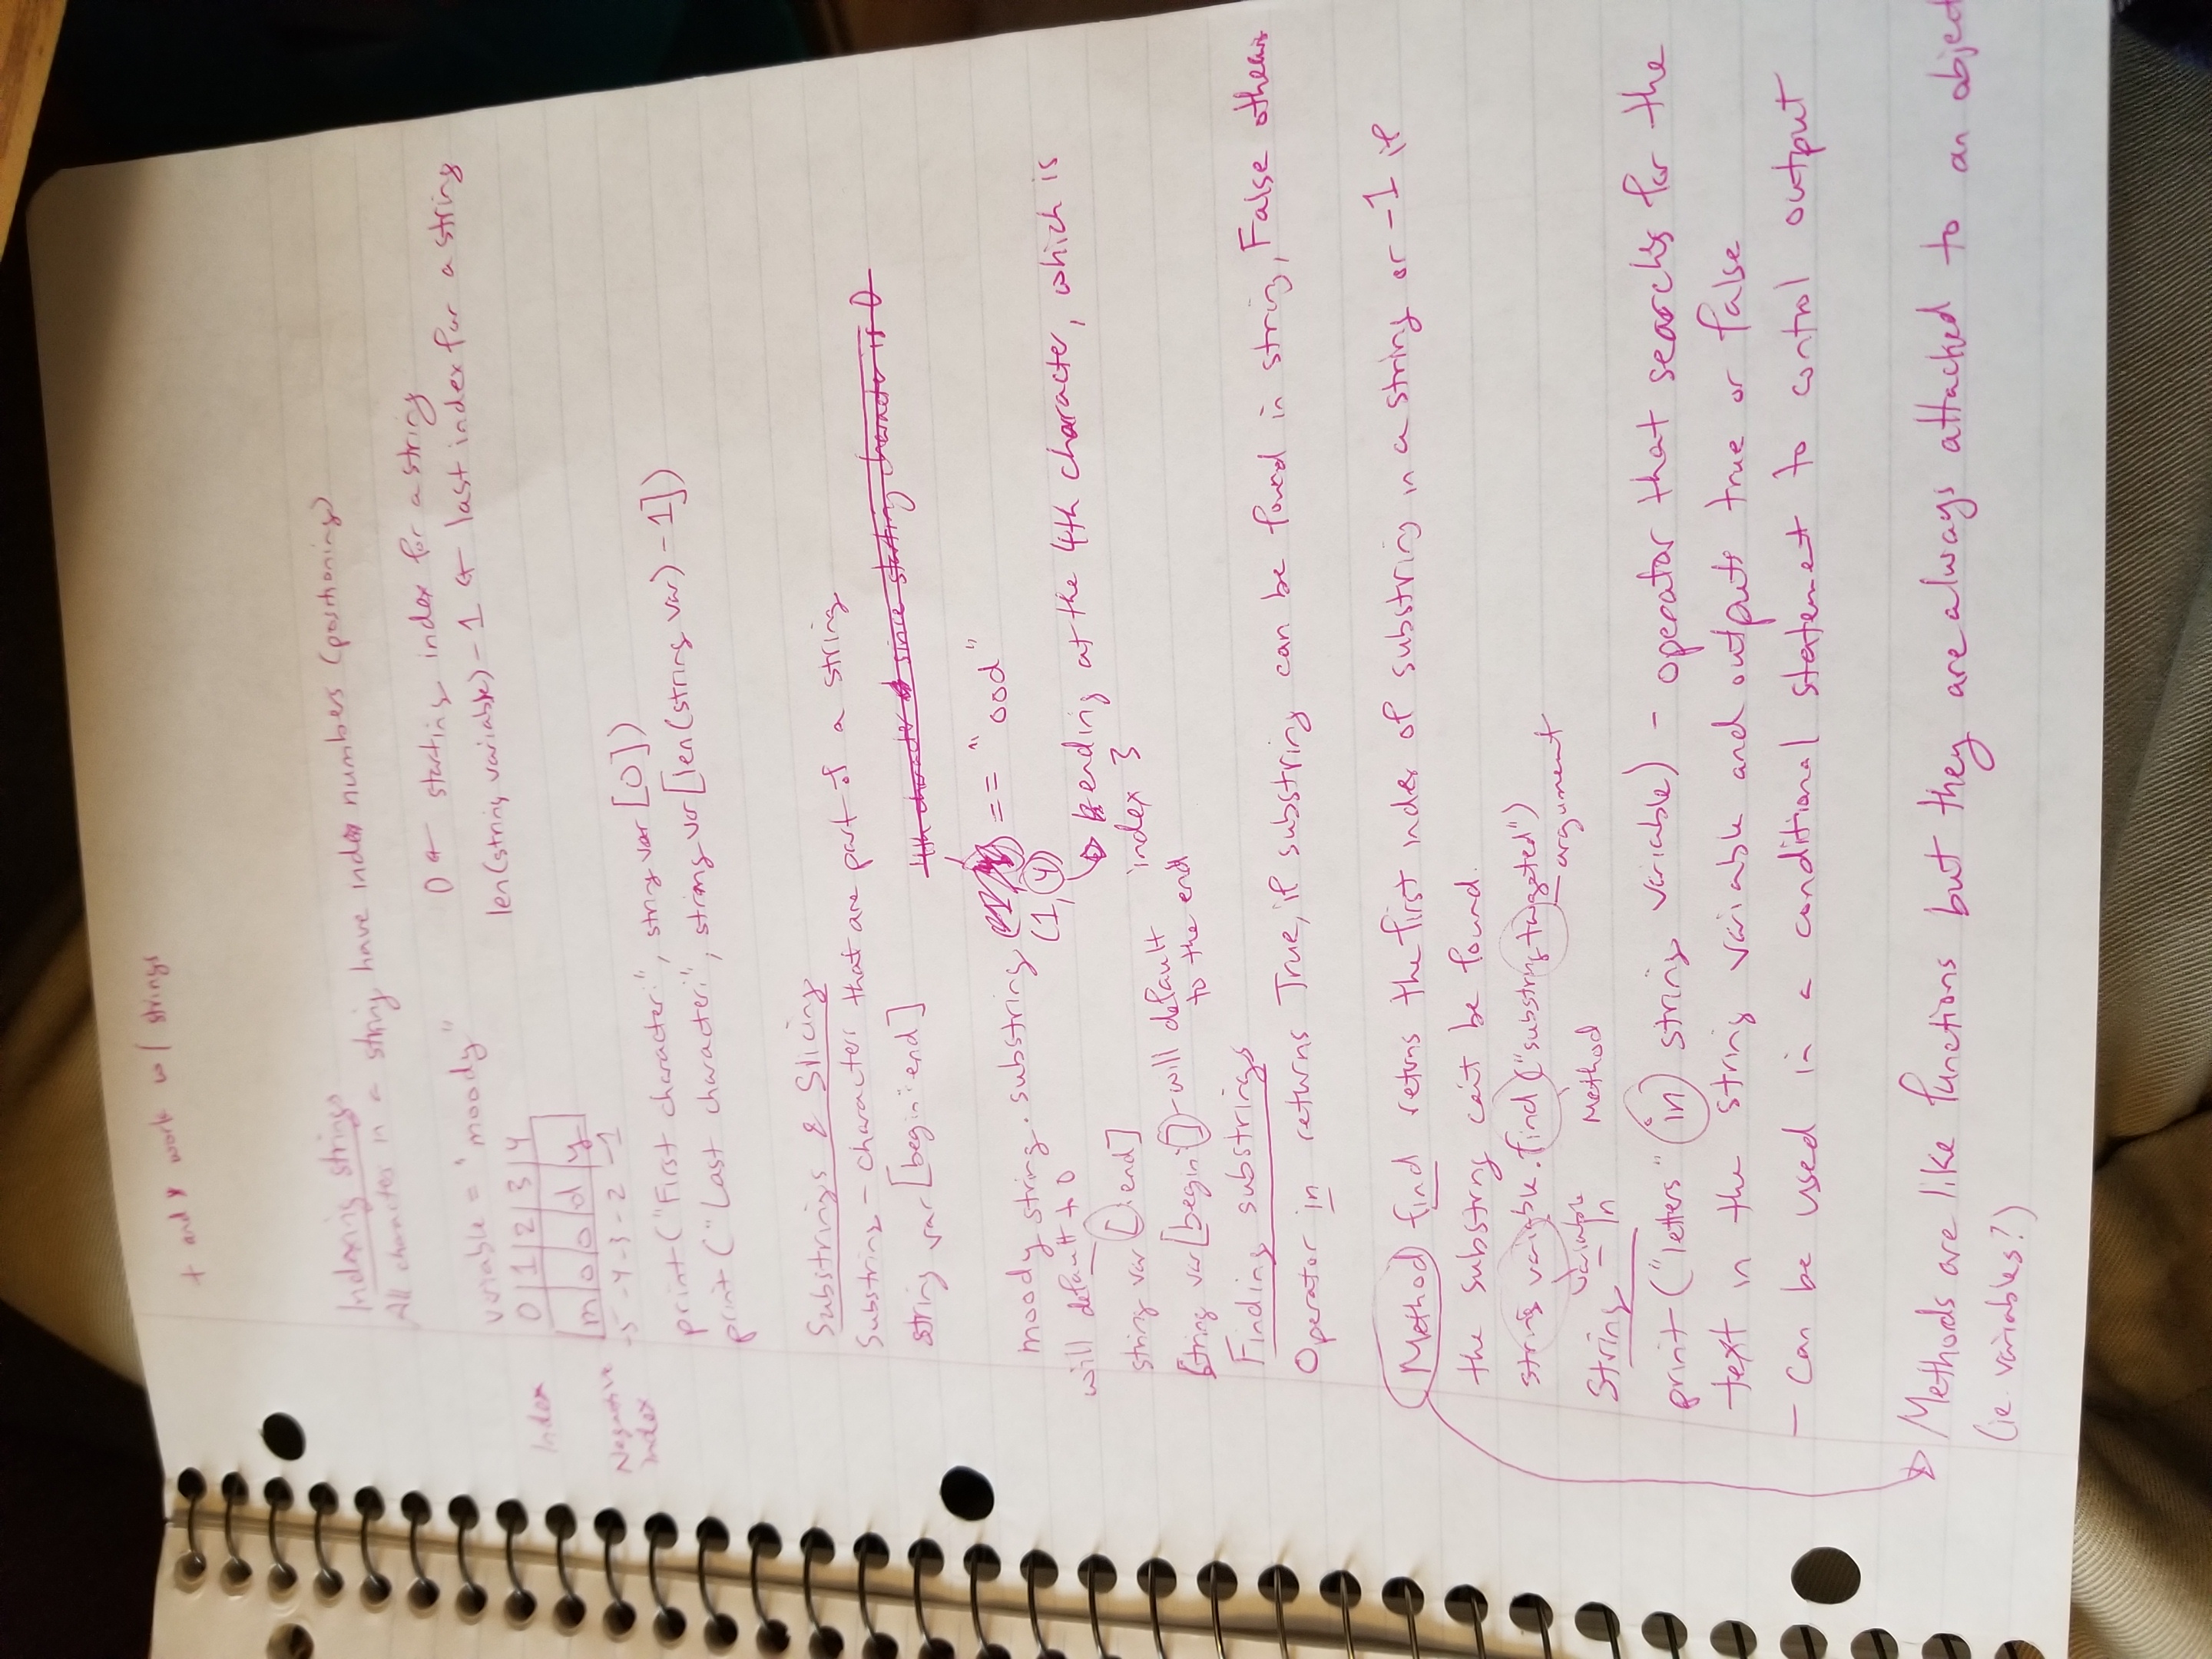 + and * work w/ strings
Indexing strings
All character in a string have index numbers (positioning)
variable = "moody"
0 ← starting index for a string
len(string variable) - 1 ← last index for a string
Index 0 | 1 | 2 | 3 | 4
m o o d y
Negative index -5 -4 -3 -2 -1
print ("First character:", string var [0])
print ("Last character:", string var [len(string var) - 1])
Substrings & Slicing
Substring - characters that are part of a string
string var [begin:end]
4th character since starting character is 0
moody string . substring == "ood"
(1, 4)
ending at the 4th character, which is
index 3
will default to 0
string var [:end]
string var [begin:] - will default
to the end
Finding substrings
Operator in returns True, if substring can be found in string, False otherwis
Method find returns the first index of substring in a string or -1 if
the substring can't be found.
string variable . find ("substring targeted")
variable Method argument
String - In
print ("letters" in string variable) - operator that searchs for the
text in the string variable and outputs true or false
- Can be used in a conditional statement to control output
Methods are like functions but they are always attacked to an object
(ie. variables?)